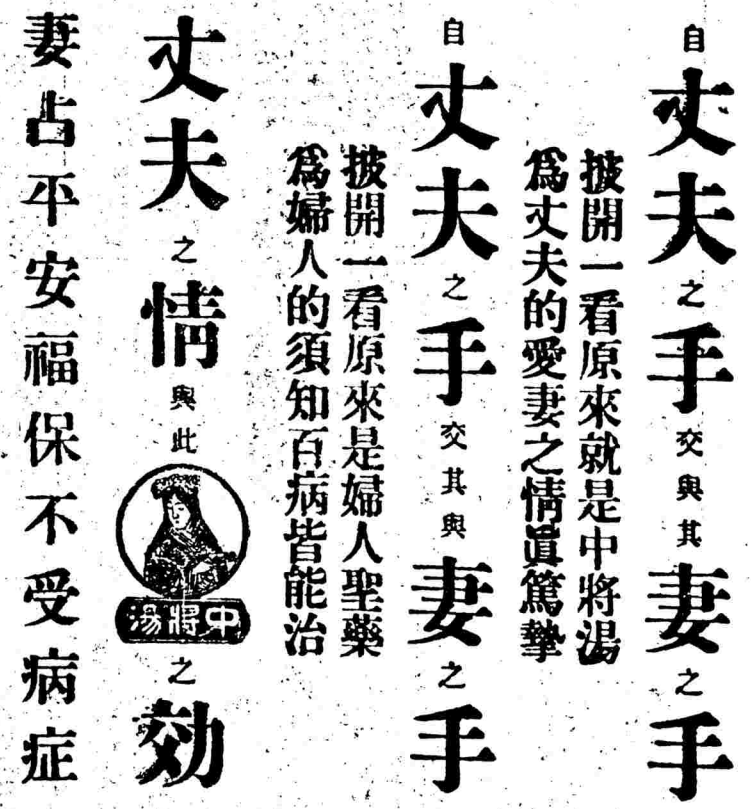 自丈夫之手交與其妻之手
披開一看原來就是中將湯
爲丈夫的愛妻之情眞篤摯
自丈夫之手交其與妻之手
披開一看原來是婦人聖藥
爲婦人的須知百病皆能治
丈夫之情與此
中將湯
之効
妻占平安福保不受病症